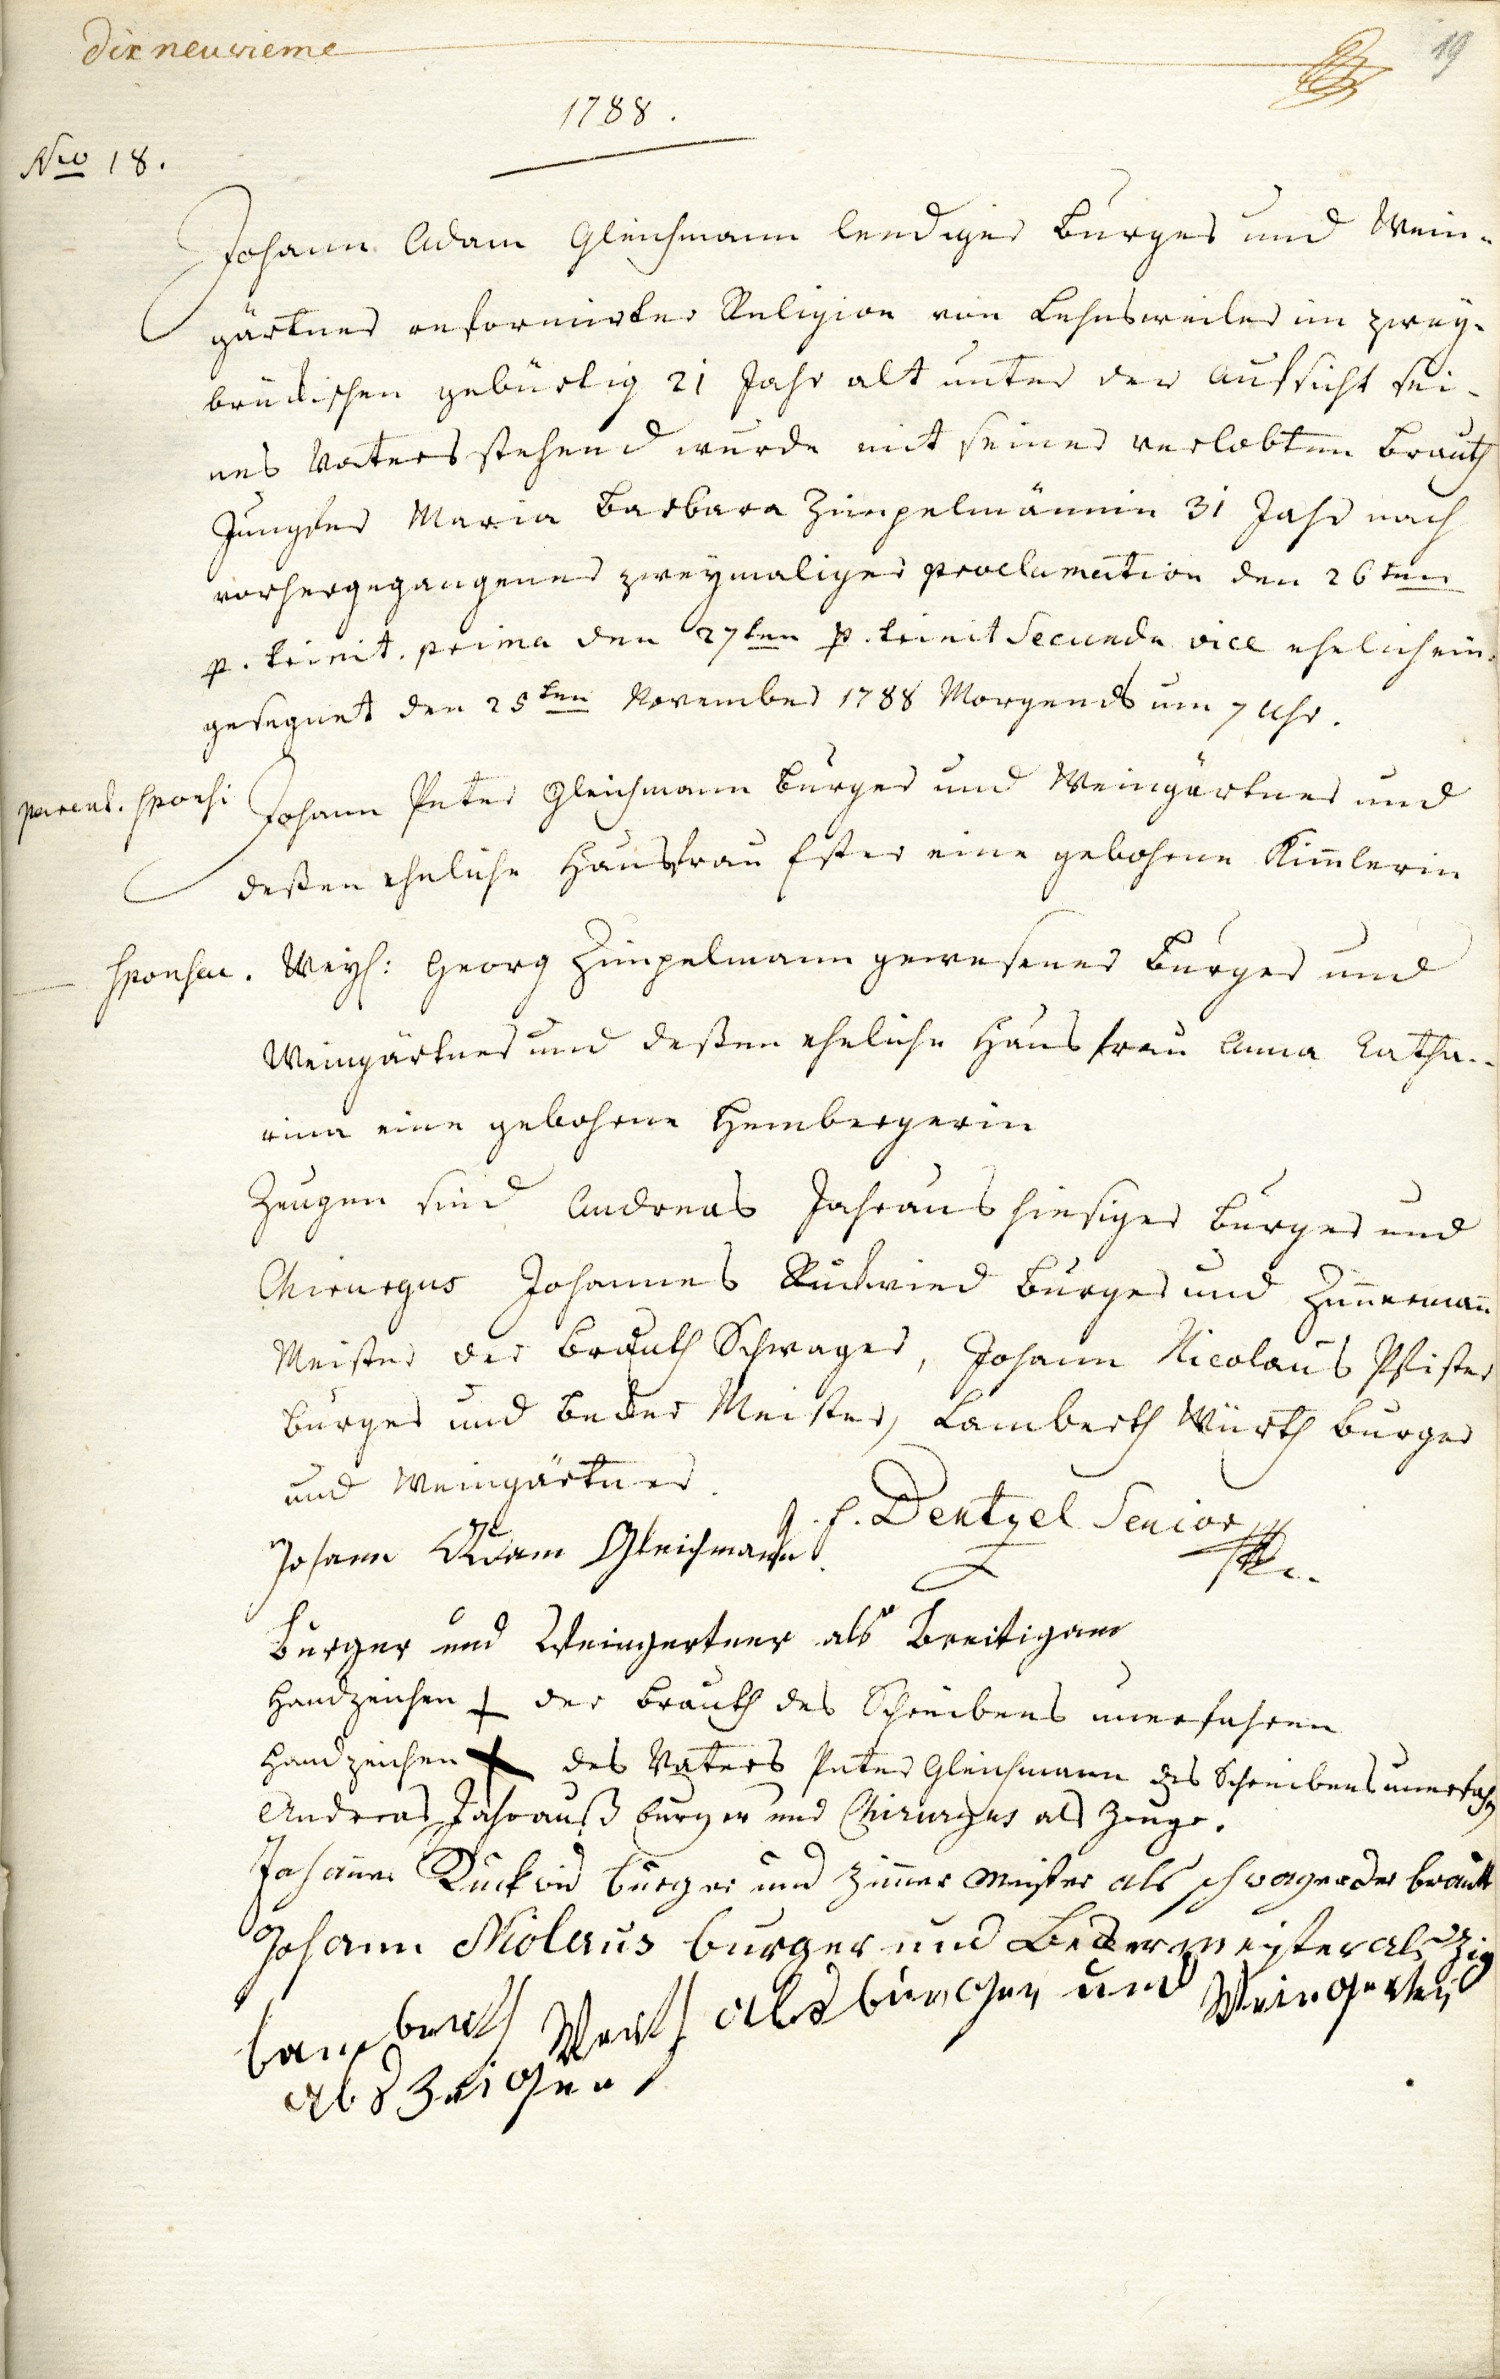 dix neuvieme
19
1788.
Nro 18.
Johann Adam Gleichmann leediger Burger und Wein-
gärtner reformirter Religion von Lehnsweiler im zwey-
brückischen gebürtig 21 Jahr alt unter der Aufsicht sei-
nes Vaters stehend wurde mit seiner verlobten Brauth
Jungfer Maria Barbara Zimpelmännin 31 Jahr nach
vorhergegangener zweymaliger proclamation den 26ten
p. trinit. prima den 27ten p. trinit Secunda vice ehelich ein-
gesegnet den 25ten November 1788 Morgends um 7 Uhr.
parent. sponsi Johann Peter Gleichmann Burger und Weingärtner und
deßen eheliche Hausfrau Ester eine gebohrne Kimlerin
sponsae. Weyl: Georg Zimpelmann gewesener Burger und
Weingärtner und deßen eheliche Hausfrau Anna Catha-
rina eine gebohrne Hembergerin
Zeugen sind Andreas Jahraus hiesiger Burger und
Chirurgus Johannes Ruckwied Burger und Zimmermann
Meister der Brauth Schwager, Johann Nicolaus Pfister
Burger und Becker Meister, Lamberth Würth Burger
und Weingärtner.
J. F. Dentzel Senior
Johann Adam Gleichmann
burger und Weingertner als Breitigam
Handzeichen + der Brauth des Schreibens unerfahren
Handzeichen + des Vaters Peter Gleichmann des Schreibens unerfahrn
Andreas Jahrauß burger und Chirurgus als Zeuge.
Johannes Ruckwid burger und Zimmer Meister als schwager der brauth
Johann Niolaus burger und Beckermeister als Zig
lamberth Werth als burcher und Weingerten
als Zeigen